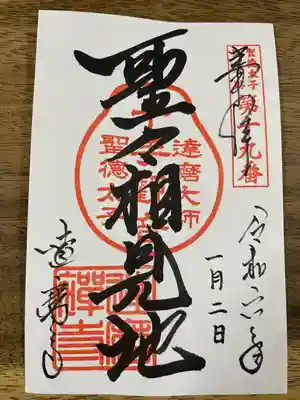 奉拝
聖々相見地
達磨大師
聖徳太子
令和六年
一月二日
達磨寺